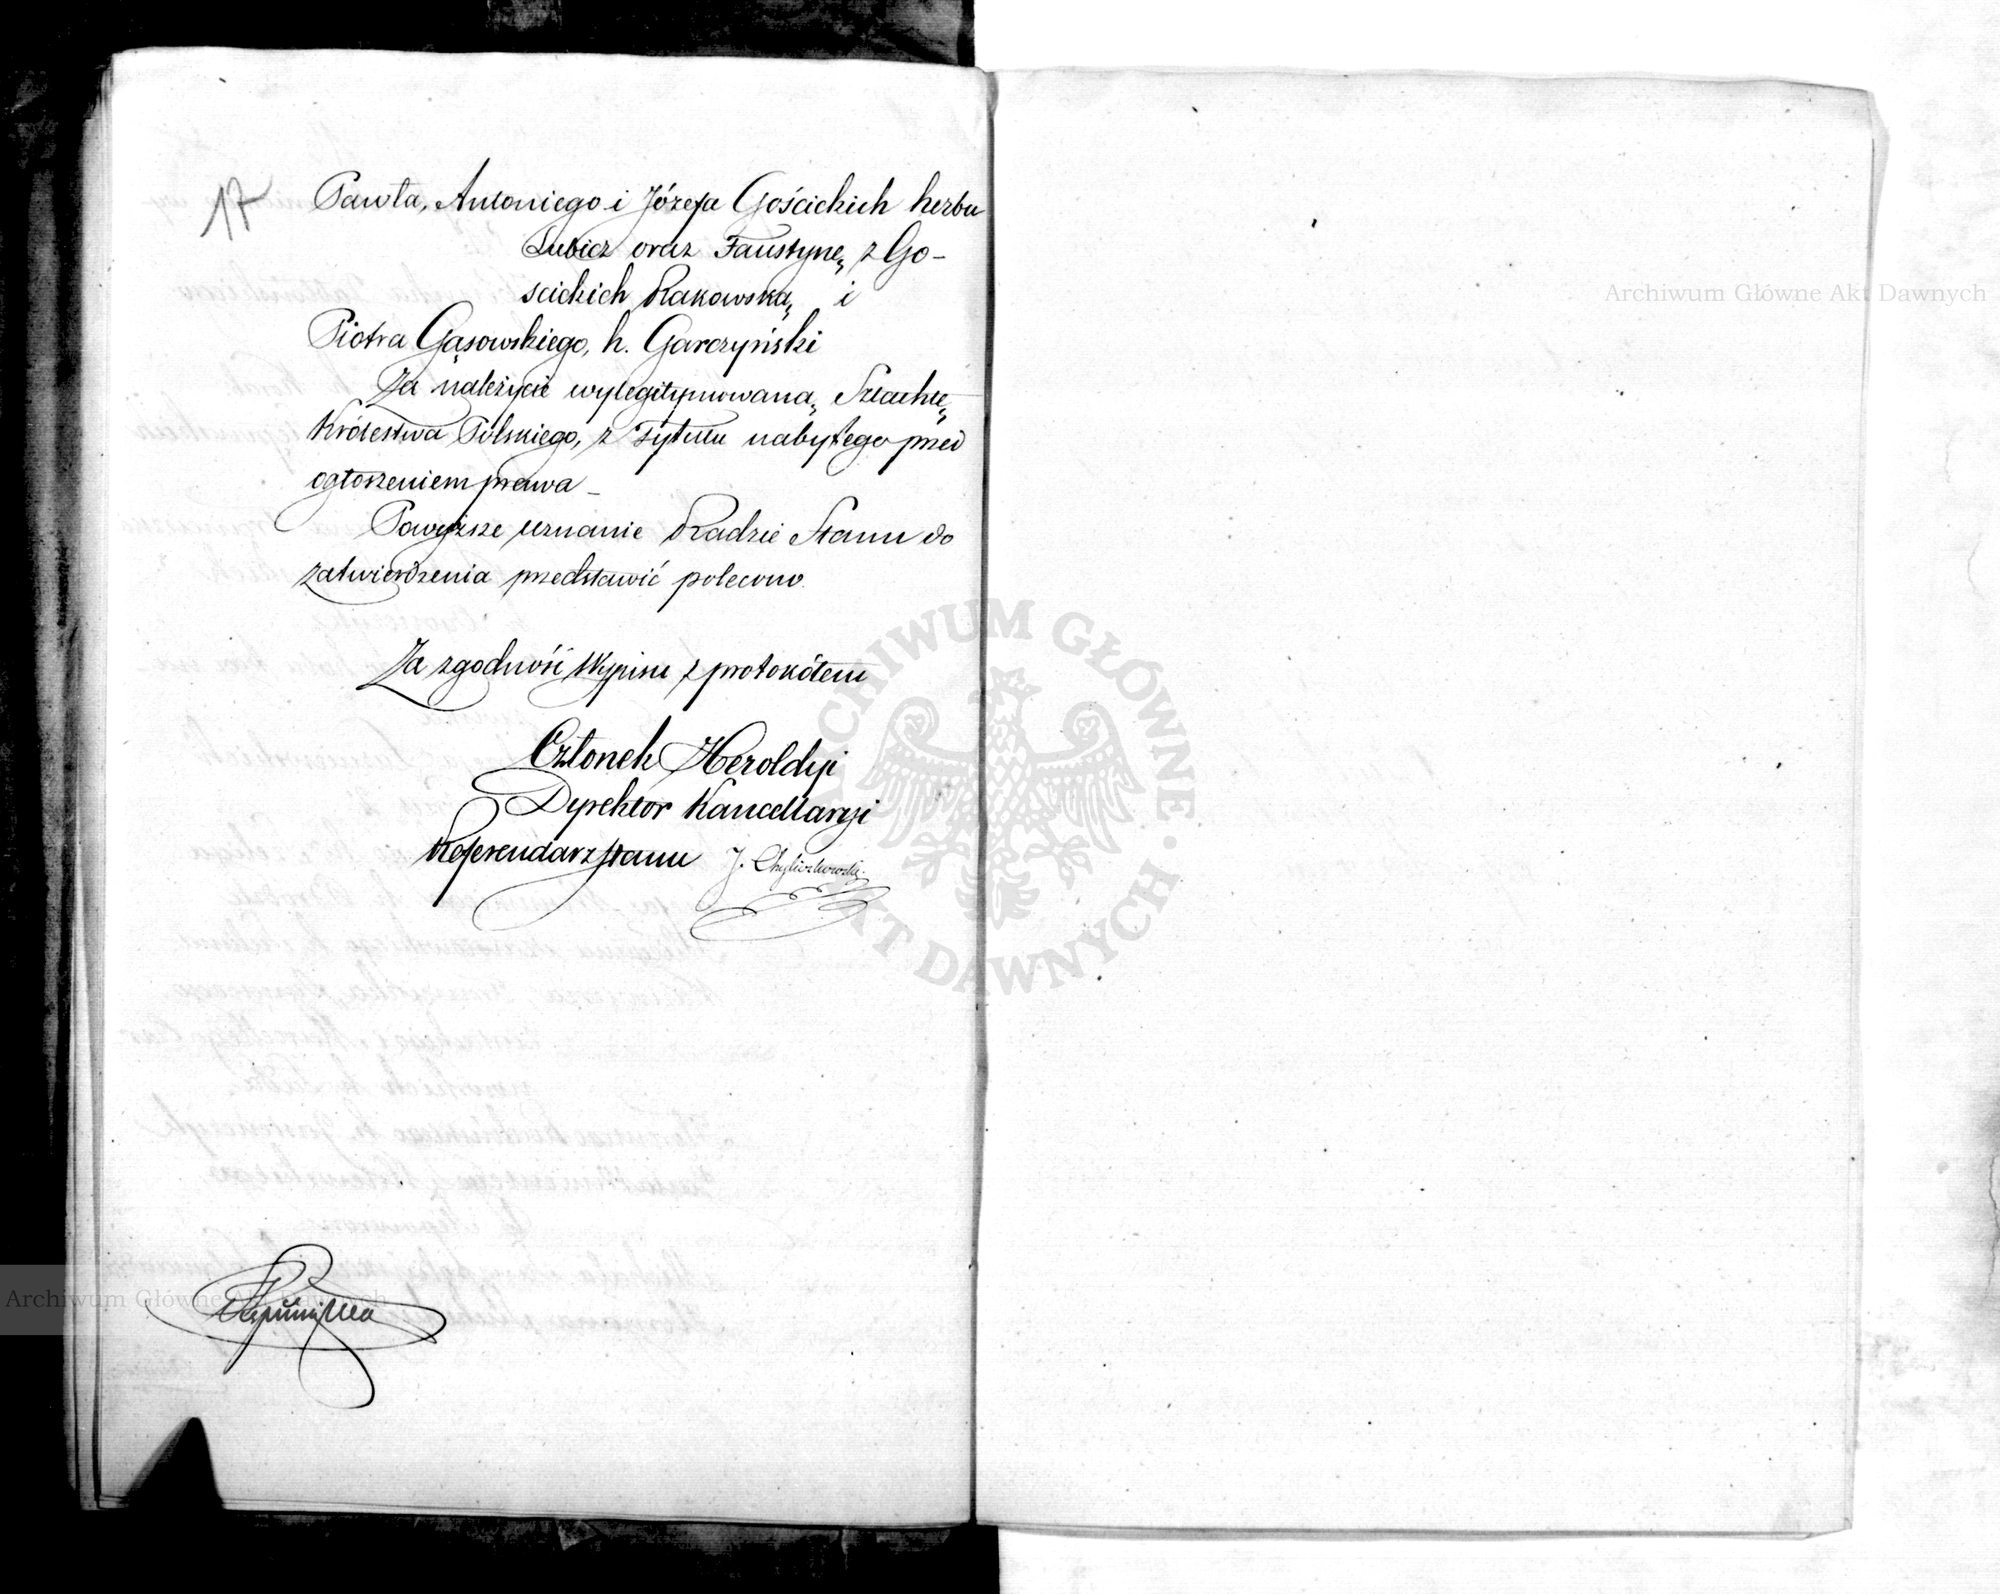 17
Pawła, Antoniego i Józefa Gościckich herbu
Lubicz oraz Faustynę z Go-
ścickich Rakowską i
Piotra Gąsowskiego, h. Garczyński
Za należycie wylegitymowaną Szlachtę
Królestwa Polskiego, z tytułu nabytego przed
ogłoszeniem prawa –
Powyższe uznanie Radzie Stanu do
zatwierdzenia przedstawić polecono.
Za zgodność Wypisu z protokółem
Członek Heroldyi
Dyrektor Kancellaryi
Referendarz Stanu J.
Archiwum Główne Akt Dawnych
Archiwum Główne Akt Dawnych
ARCHIWUM GŁÓWNE · AKT DAWNYCH ·